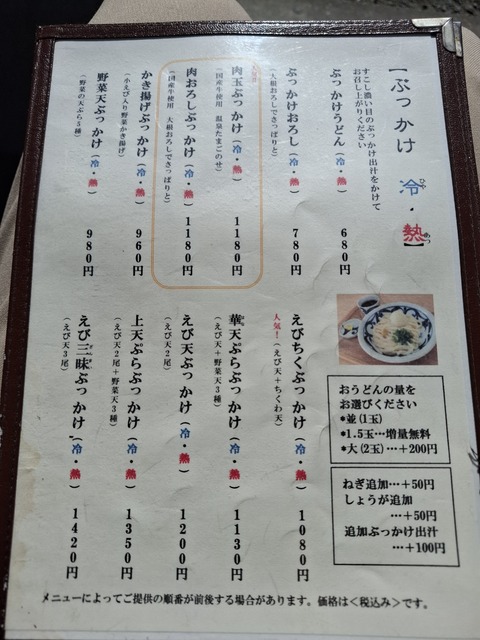 【ぶっかけ 冷・熱】
ひや
あつ
すこし濃い目のぶっかけ出汁をかけて
お召し上がりください
ぶっかけうどん（冷・熱） 680円
ぶっかけおろし（冷・熱） 780円
（大根おろしでさっぱりと）
人気!!
肉玉ぶっかけ（冷・熱） 1180円
（国産牛使用 温泉たまごのせ）
肉おろしぶっかけ（冷・熱） 1180円
（国産牛使用 大根おろしでさっぱりと）
かき揚げぶっかけ（冷・熱） 960円
（小えび入り野菜かき揚げ）
野菜天ぶっかけ（冷・熱） 980円
（野菜の天ぷら5種）
えびちくぶっかけ（冷・熱） 1080円
人気！（えび天+ちくわ天）
華天ぷらぶっかけ（冷・熱） 1130円
（えび天+野菜天3種）
えび天ぶっかけ（冷・熱） 1200円
（えび天2尾）
上天ぷらぶっかけ（冷・熱） 1350円
（えび天2尾+野菜天3種）
えび三昧ぶっかけ（冷・熱） 1420円
（えび天3尾）
おうどんの量を
お選びください
*並(1玉)
*1.5玉…増量無料
*大(2玉)…+200円
ねぎ追加…+50円
しょうが追加
…+50円
追加ぶっかけ出汁
…+100円
メニューによってご提供の順番が前後する場合があります。価格は＜税込み＞です。